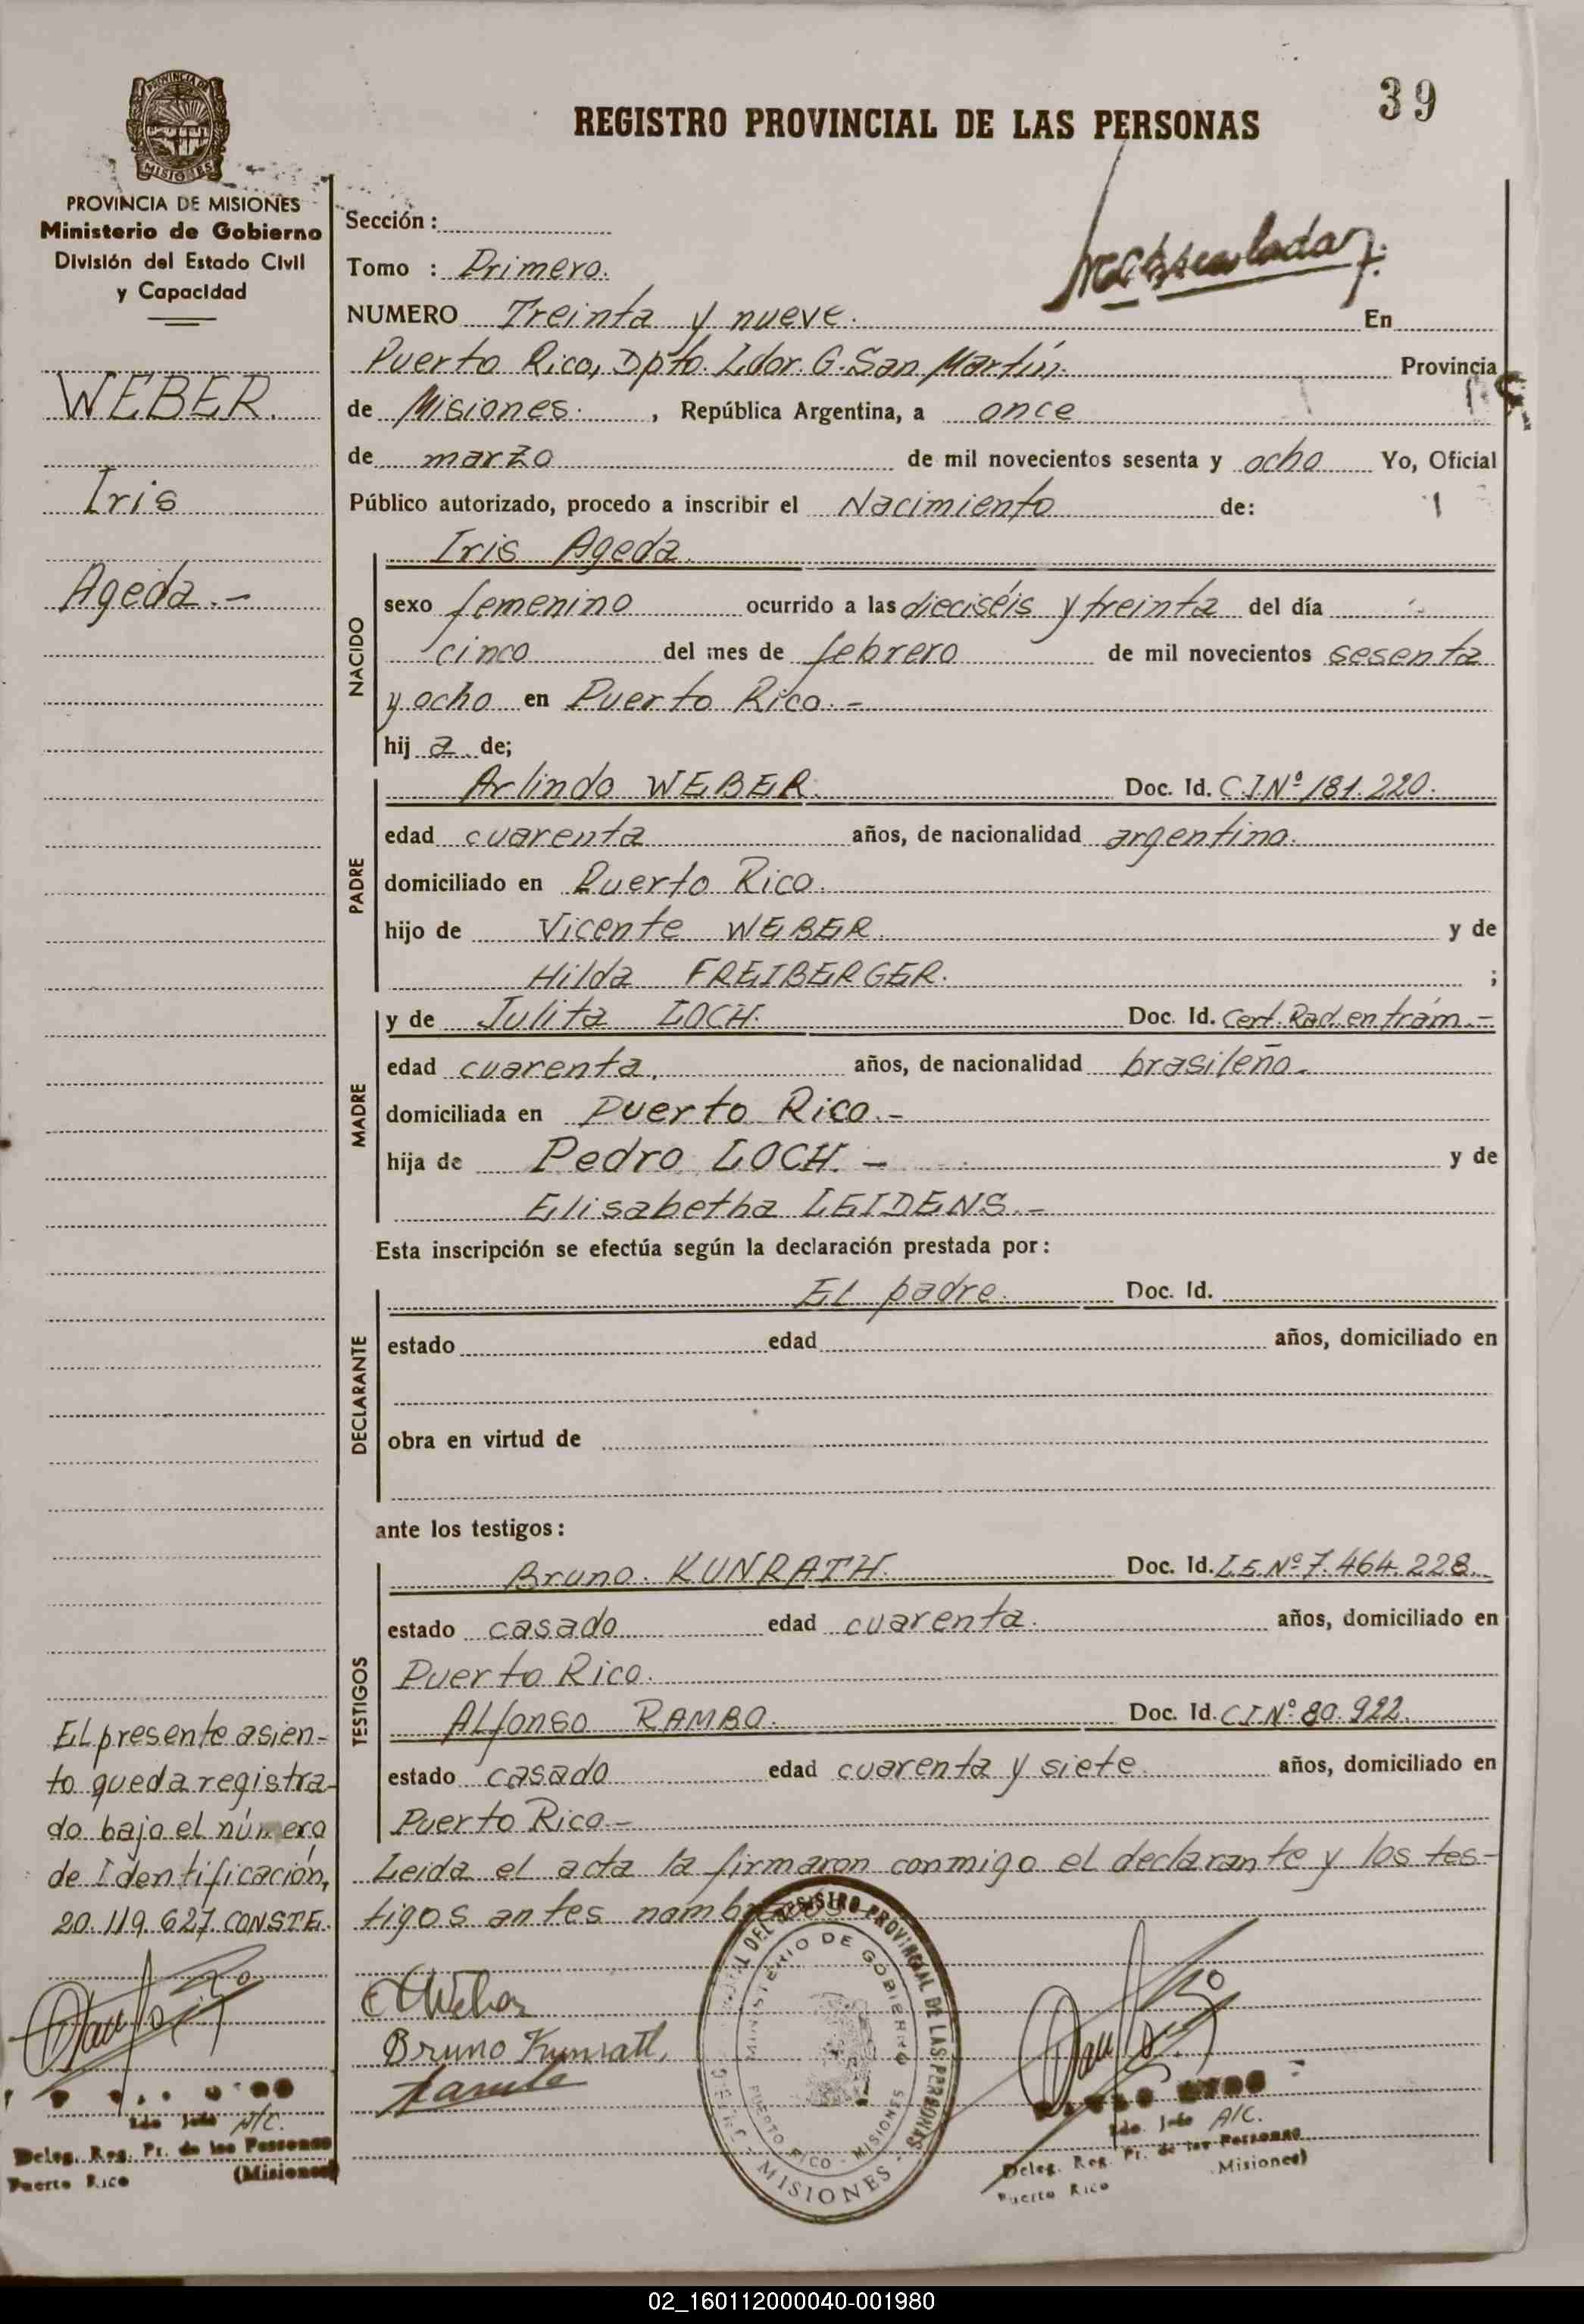 39
REGISTRO PROVINCIAL DE LAS PERSONAS
PROVINCIA DE
MISIONES
PROVINCIA DE MISIONES
Ministerio de Gobierno
División del Estado Civil
y Capacidad
WEBER.
Iris
Ageda.-
Sección:
Tomo : Primero.
NUMERO Treinta y nueve. En
Puerto Rico, Dpto. Ldor. G. San Martín. Provincia
de Misiones. , República Argentina, a once
de marzo de mil novecientos sesenta y ocho Yo, Oficial
Público autorizado, procedo a inscribir el Nacimiento de:
NACIDO
Iris Ageda.
sexo femenino ocurrido a las dieciséis y treinta del día
cinco del mes de febrero de mil novecientos sesenta
y ocho en Puerto Rico.-
hij a de;
PADRE
Arlindo WEBER. Doc. Id. C.I.Nº 181.220.
edad cuarenta años, de nacionalidad argentino.
domiciliado en Puerto Rico.
hijo de Vicente WEBER. y de
Hilda FREIBERGER. ;
MADRE
y de Julita LOCH. Doc. Id. Cert. Rad. en trám.-
edad cuarenta. años, de nacionalidad brasileña.
domiciliada en Puerto Rico.-
hija de Pedro LOCH.- y de
Elisabetha LEIDENS.-
Esta inscripción se efectúa según la declaración prestada por:
DECLARANTE
El padre. Doc. Id.
estado edad años, domiciliado en
obra en virtud de
ante los testigos:
TESTIGOS
Bruno. KUNRATH. Doc. Id. L.E.Nº 7.464.228.
estado casado edad cuarenta. años, domiciliado en
Puerto Rico.
Alfonso RAMBO. Doc. Id. C.I.Nº 80.922.
estado casado edad cuarenta y siete años, domiciliado en
Puerto Rico-
Leida el acta la firmaron conmigo el declarante y los tes-
tigos antes
El presente asien-
to queda registra-
do bajo el número
de Identificación,
20.119.627. CONSTE.
Bruno Kunrath.
REGISTRO PROVINCIAL DE LAS PERSONAS
MISIONES
MINISTERIO DE GOBIERNO
PUERTO RICO - MISIONES
A/C.
Deleg. Reg. Pr. de las Personas
Puerto Rico (Misiones)
Jefe A/C.
Deleg. Reg. Pr. de las Personas
Puerto Rico Misiones)
02_160112000040-001980